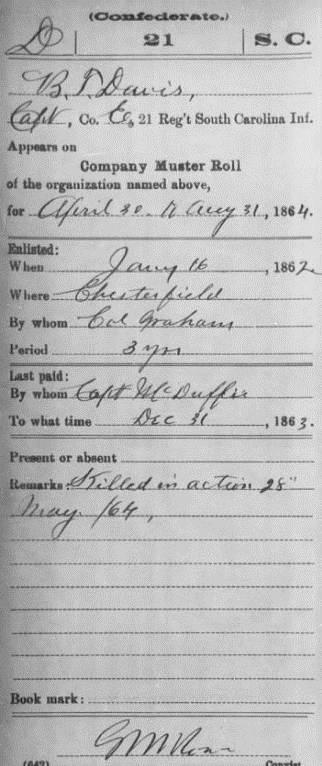 (Confederate.)
D | 21 | S. C.
B. T. Davis,
Capt, Co. E, 21 Reg't South Carolina Inf.
Appears on
Company Muster Roll
of the organization named above,
for April 30 to Aug 31, 1864.
Enlisted:
When Jany 16, 1862
Where Chesterfield
By whom Col Graham
Period 3 yrs
Last paid:
By whom Capt McDuffie
To what time Dec 31, 1863.
Present or absent
Remarks: Killed in action 28"
May /64,
Book mark:
(642) Copyist.